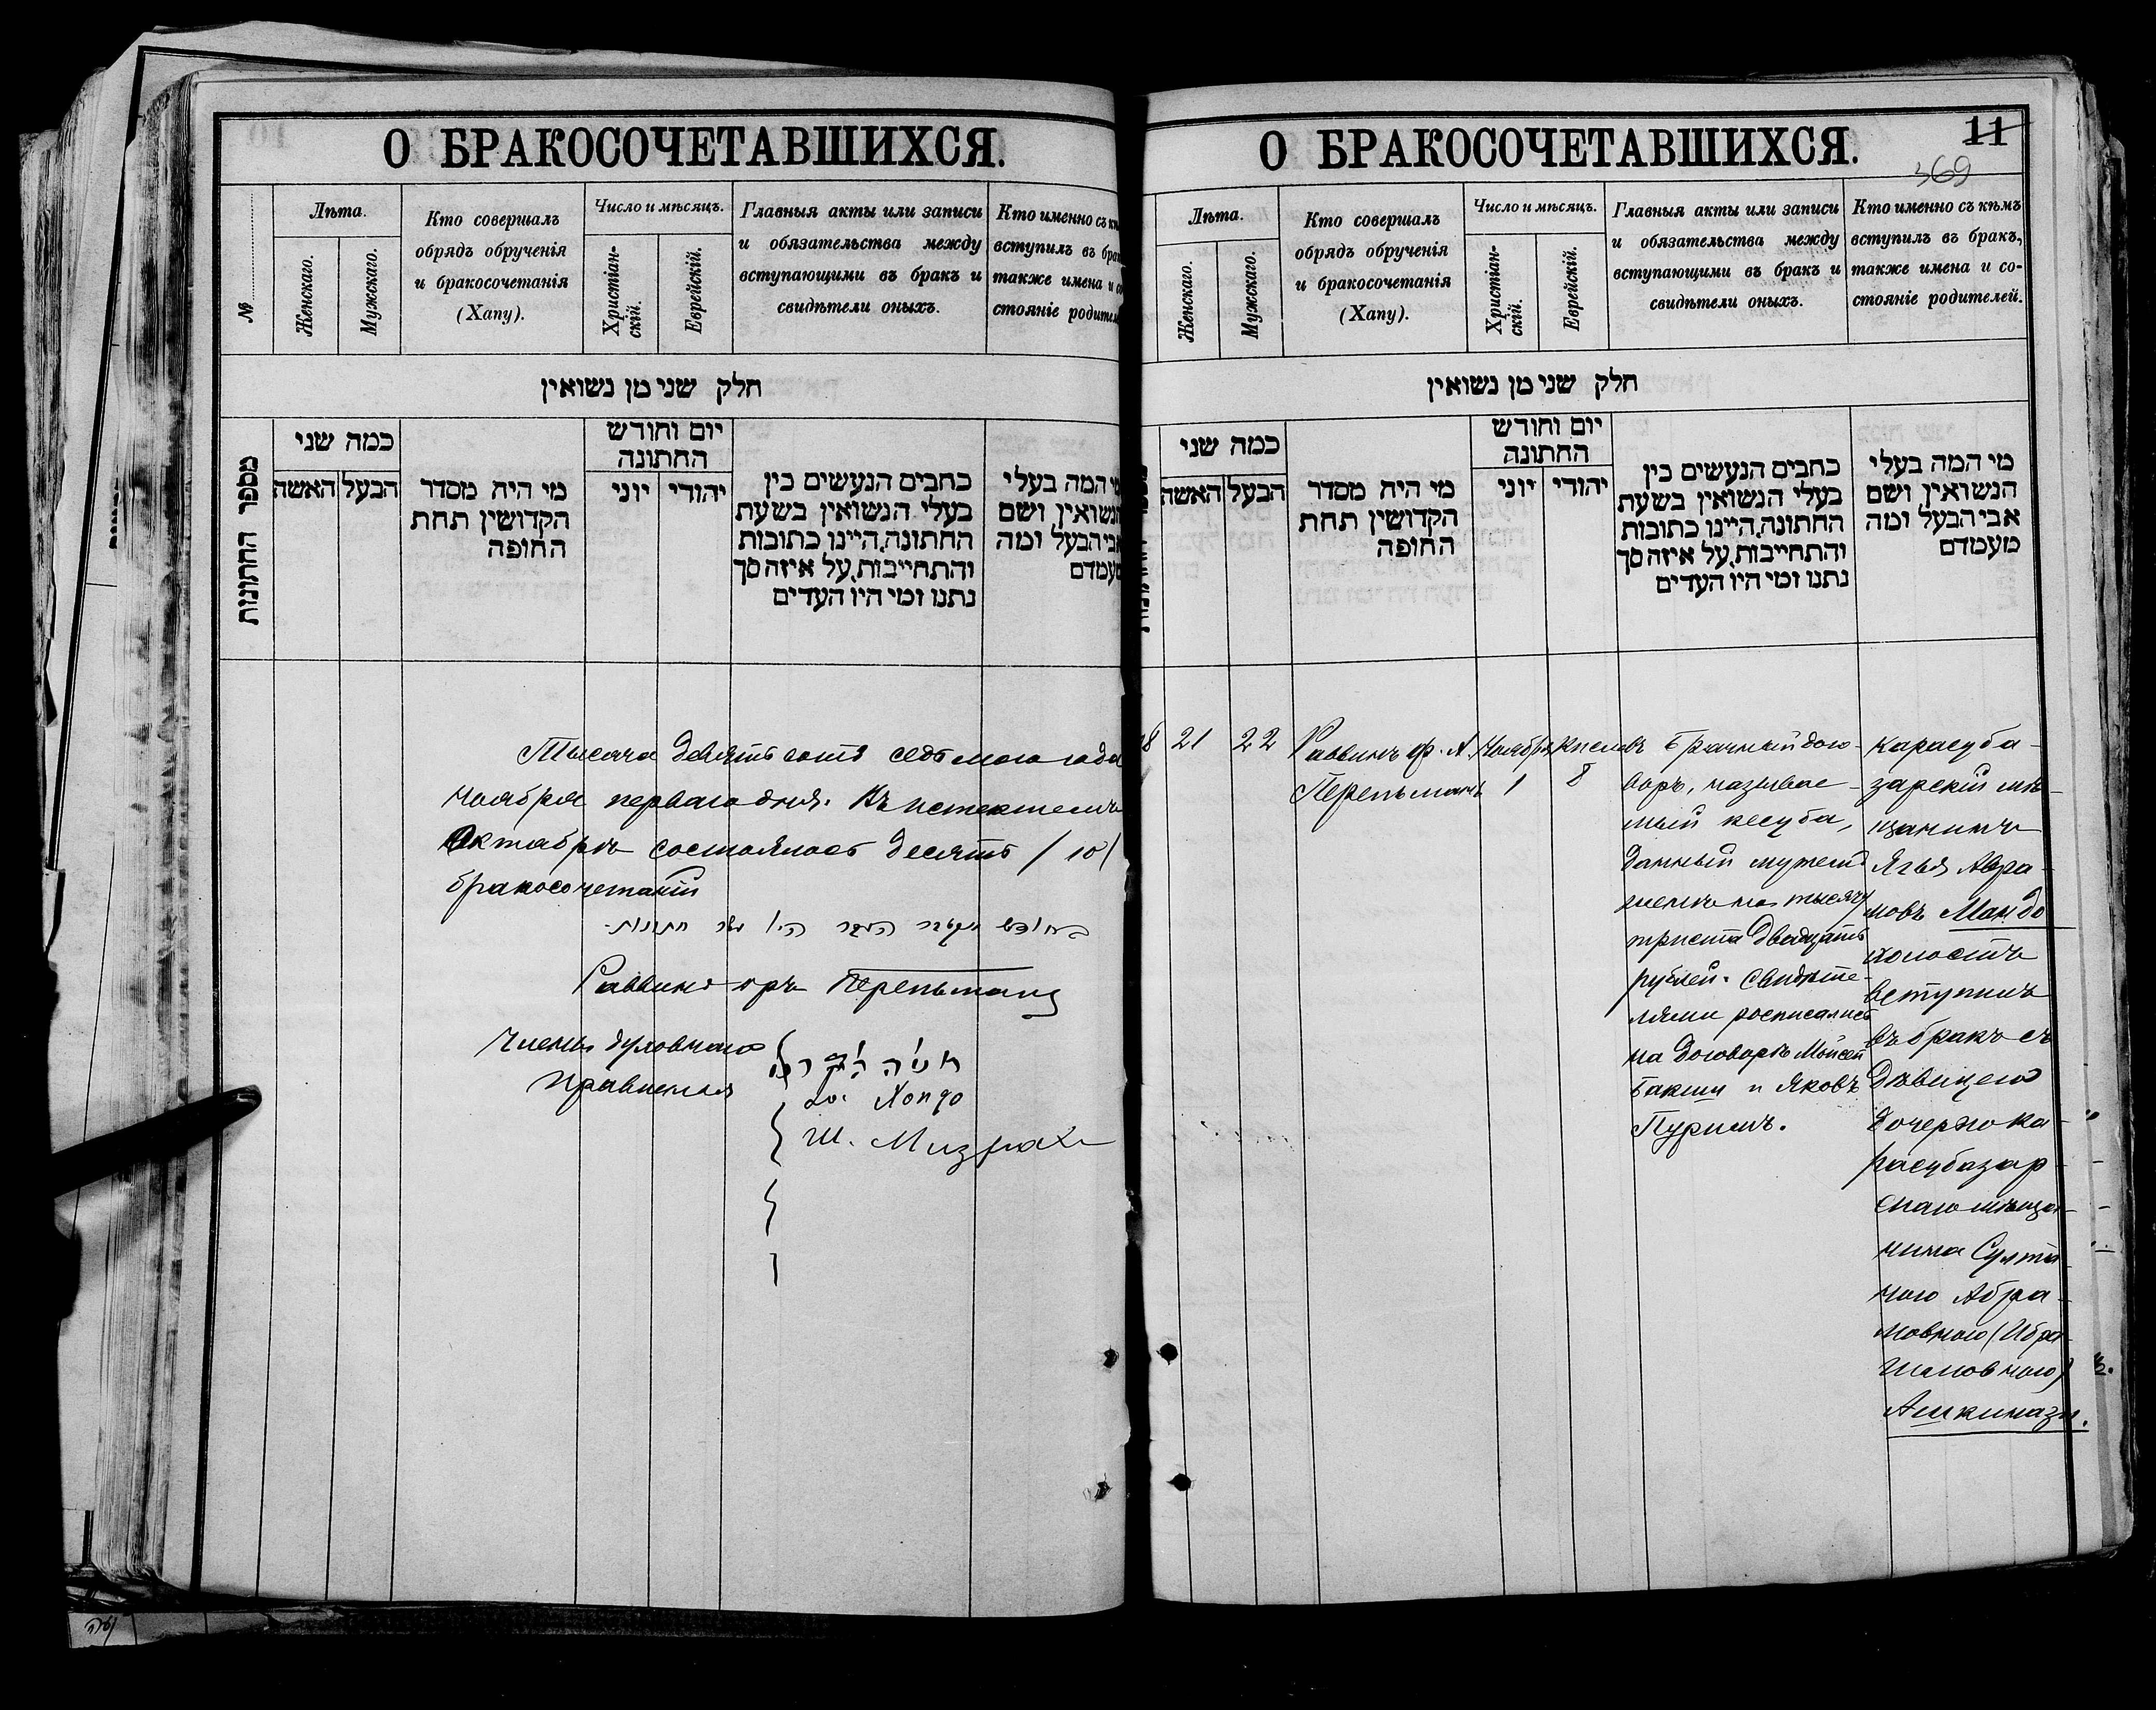 О БРАКОСОЧЕТАВШИХСЯ.
№
Лѣта.
Женскаго.
Мужскаго.
Кто совершалъ
обрядъ обрученія
и бракосочетанія
(Хапу).
Число и мѣсяцъ.
Христіан-
скій.
Еврейскій.
Главныя акты или записи
и обязательства между
вступающими въ бракъ и
свидѣтели оныхъ.
Кто именно съ
вступилъ въ
также имена и
стояніе
חלק שני מן נשואין
מספר החתונות
כמה שני
הבעל
האשה
מי היה מסדר
הקדושין תחת
החופה
יום וחודש
החתונה
יהודי
יוני
כתבים הנעשים בין
בעלי הנשואין בשעת
החתונה, היינו כתובות
והתחייבות, על איזה סך
נתנו ומי היו העדים
מי המה בעלי
הנשואין ושם
אבי הבעל ומה
מעמדם
Тысяча девятьсотъ седьмого года
ноября перваго дня. Въ истекшемъ
Октябрѣ состоялось десять /10/
бракосочетаній
Раввинъ Перепьманъ
Члены духовнаго
правленія
Хондо
Ш. Мизрахи
О БРАКОСОЧЕТАВШИХСЯ.
11
369
Лѣта.
Женскаго.
Мужскаго.
Кто совершалъ
обрядъ обрученія
и бракосочетанія
(Хапу).
Число и мѣсяцъ.
Христіан-
скій.
Еврейскій.
Главныя акты или записи
и обязательства между
вступающими въ бракъ и
свидѣтели оныхъ.
Кто именно съ кѣмъ
вступилъ въ бракъ,
также имена и со-
стояніе родителей.
חלק שני מן נשואין
כמה שני
הבעל
האשה
מי היה מסדר
הקדושין תחת
החופה
יום וחודש
החתונה
יהודי
יוני
כתבים הנעשים בין
בעלי הנשואין בשעת
החתונה, היינו כתובות
והתחייבות, על איזה סך
נתנו ומי היו העדים
מי המה בעלי
הנשואין ושם
אבי הבעל ומה
מעמדם
21
22
Раввинъ Ф. А.
Перепьманъ
Ноября
1
Кислевъ
8
Брачный дого-
воръ, называе-
мый кесуба,
данный мужемъ
женѣ на тысячу
триста двадцать
рублей. Свидѣте-
лями росписались
на договорѣ Мойсей
Бакши и Яковъ
Пуримъ.
Карасуба-
зарскій мѣ-
щанинъ
Ягья Авра-
мовъ Мандо
холостъ
вступилъ
въ бракъ съ
дѣвицею
дочерью ка-
расубазар-
скаго мѣща-
нина Султа-
ною Абра-
мовною (Ибра-
имовною)
Ашкинази.